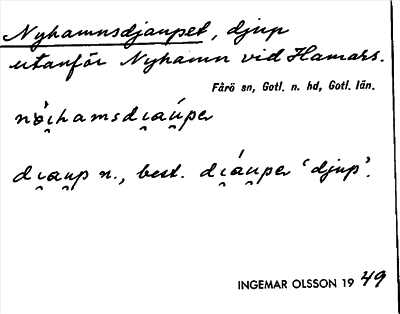 Nyhamnsdjaupet, djup
utanför Nyhamn vid Hamars.
Fårö sn, Gotl. n. hd, Gotl. län.
nɵ́i̯hamsdi̯aú̯per
di̯au̯p n., best. di̯áu̯per 'djup'.
INGEMAR OLSSON 19 49